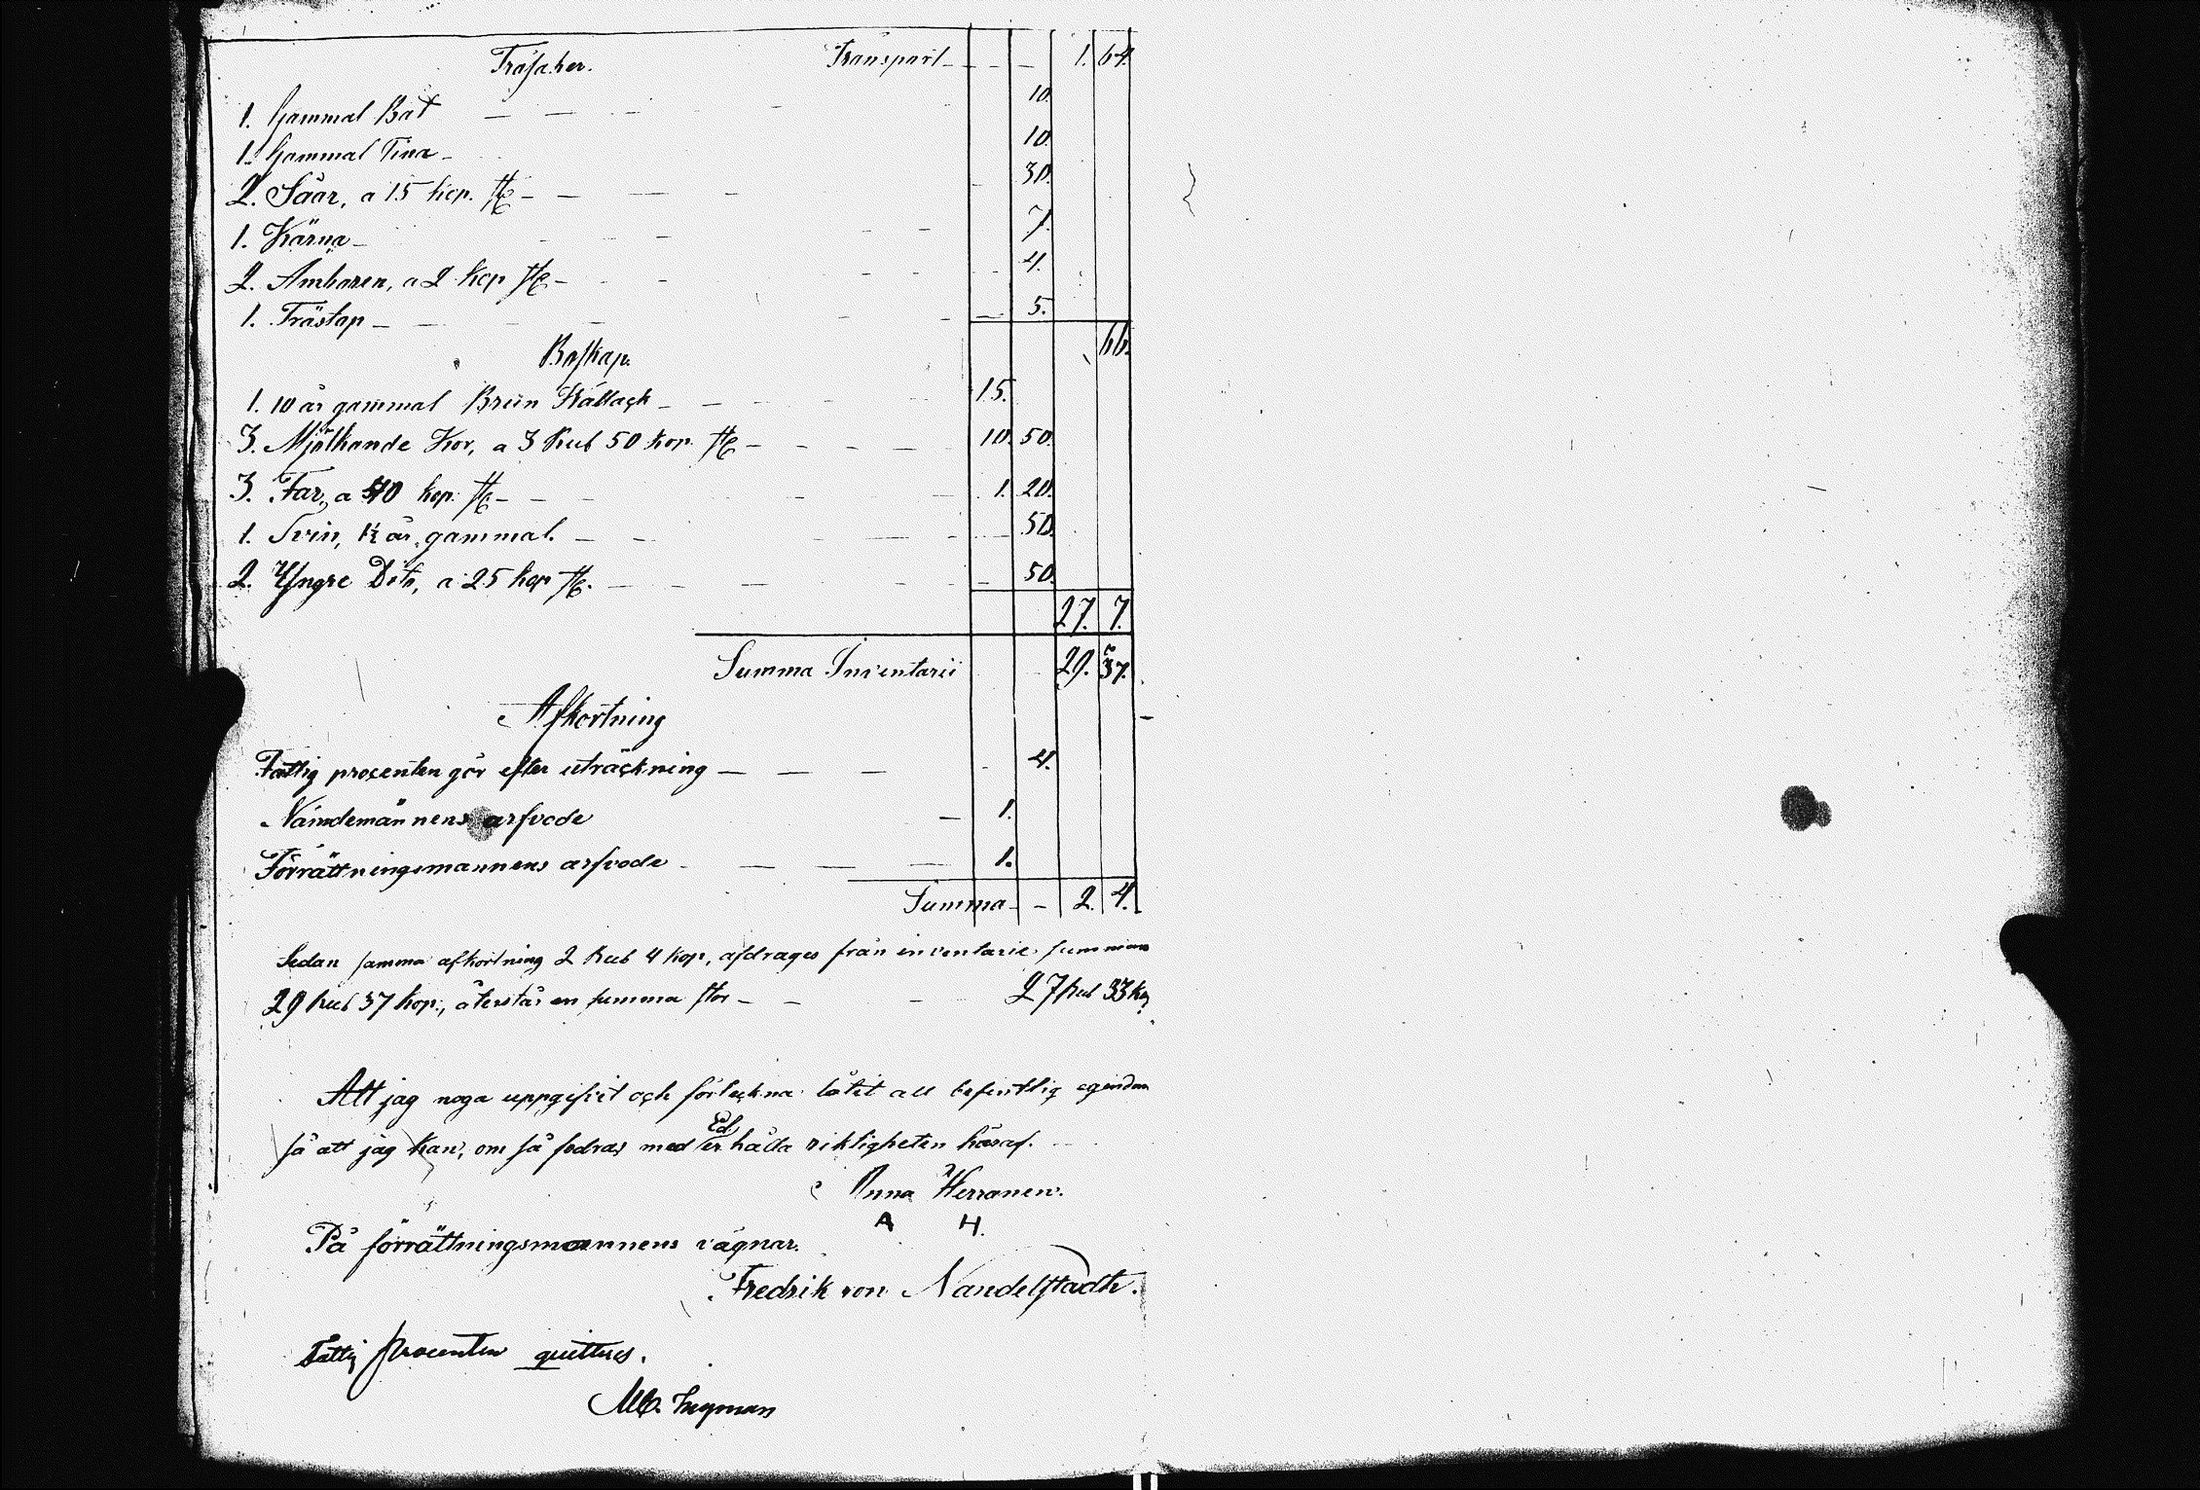 Träsaker. Transport - - - 1. 64.
1. Gammal Båt — — — 10.
1. Gammal Tina - 10.
2. Såar, a 15 kop. st - — — - 30.
1. Kärna - - - 7.
2. Ambaren, a 2 kop st - - - 4.
1. Trästop - - - 5.
66.
Boskap.
1. 10 år gammal Brun Hållack - - - 15.
3. Mjölkande Kor, a 3 Rub 50 kop. st - - - 10. 50.
3. Får, a 40 kop. st - - - 1. 20.
1. Svin, 1½ år gammal. - - - 50.
2. Yngre Dito, a 25 kop st. - - - 50.
27. 7.
Summa Inventarii 29. 37.
Afkortning
Fattig procenten gör efter uträckning — — — 4.
Nämdemännens arfvode — 1.
Förrättningsmannens arfvode - — — — 1.
Summa - - 2. 4.
Sedan samma afkortning 2 Rub 4 kop, afdrages från inventarie summan
29 Rub 37 kop., återstår en summa stor - - - 27 Rub 33 kop
Att jag noga uppgifvit och förteckna låtit all befintlig egendom
så att jag kan, om så fodras med Ed erhålla riktigheten häraf.
Anna Herranen.
A H.
På förrättningsmannens vägnar.
Fredrik von Nandelstadh.
Fattig procenten quitteres.
Ingman